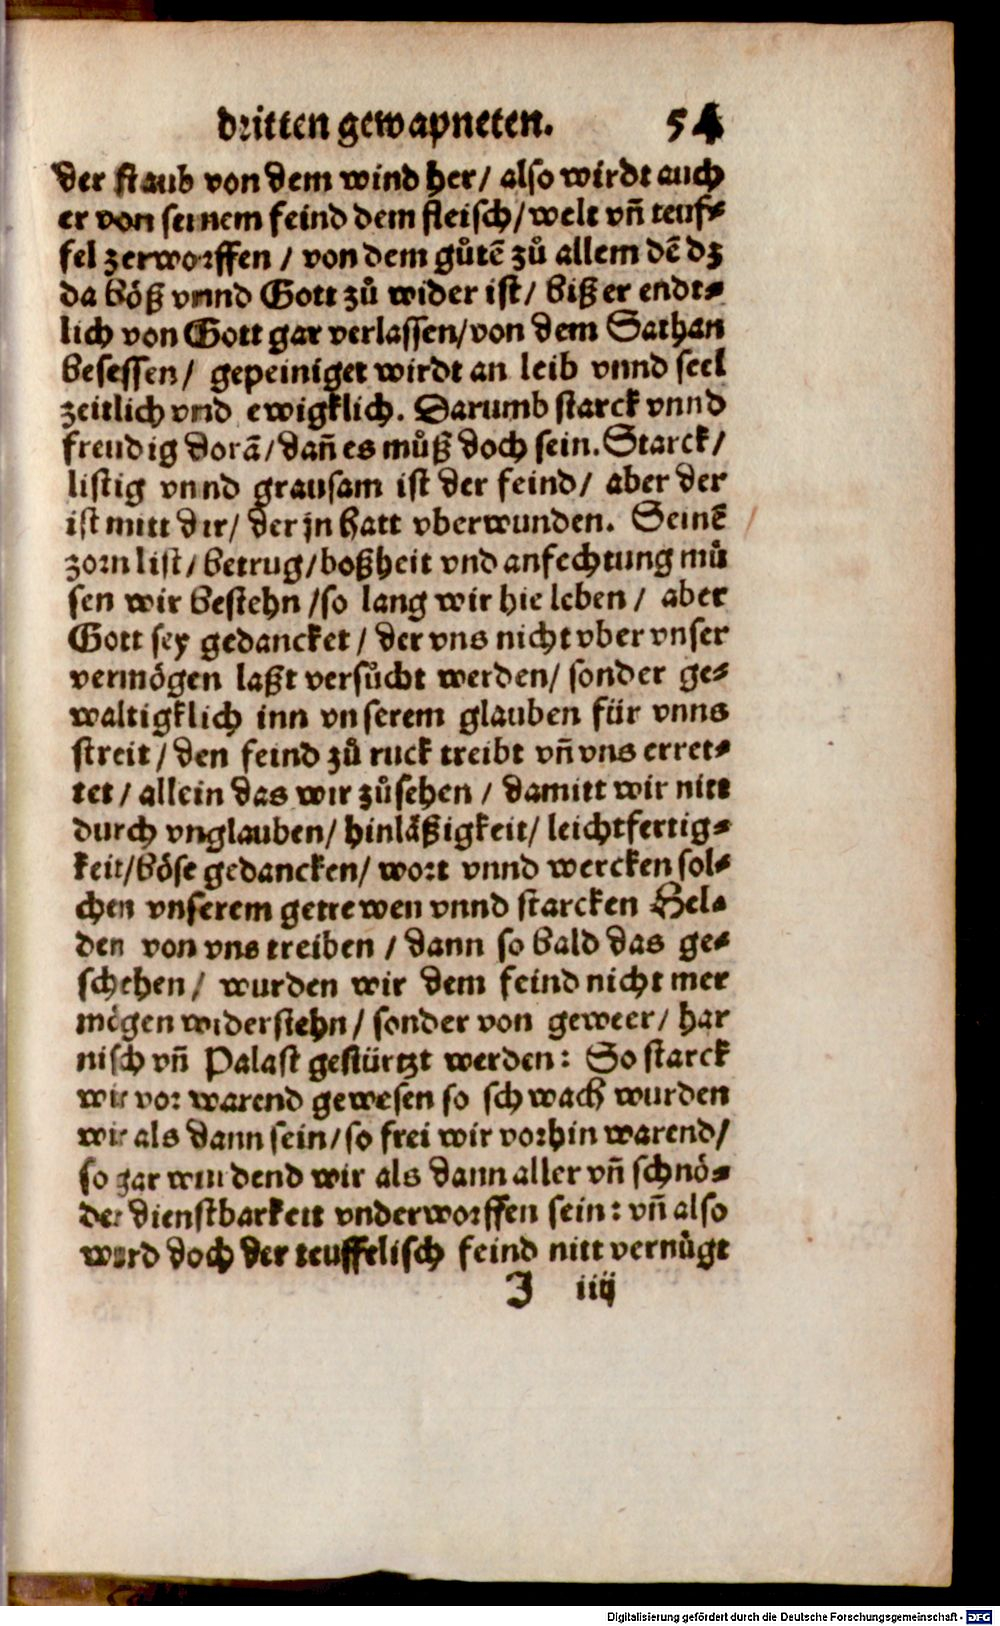 dritten gewapneten. 54
der staub von dem wind her/ also wirdt auch
er von seinem feind dem fleisch/ welt vñ teuf-
fel zerworffen / von dem gůtẽ zů allem dẽ dz
da böß vnnd Gott zů wider ist/ biß er endt-
lich von Gott gar verlassen/ von dem Sathan
besessen/ gepeiniget wirdt an leib vnnd seel
zeitlich vnd ewigklich. Darumb starck vnnd
freudig dorã/ dañ es můß doch sein. Starck/
listig vnnd grausam ist der feind/ aber der
ist mitt dir/ der jn hatt vberwunden. Seinẽ
zorn list/ betrug/ boßheit vnd anfechtung mů
sen wir bestehn /so lang wir hie leben/ aber
Gott sey gedancket / der vns nicht vber vnser
vermögen laßt versůcht werden/ sonder ge-
waltigklich inn vnserem glauben für vnns
streit / den feind zů ruck treibt vñ vns erret-
tet / allein das wir zůsehen / damitt wir nitt
durch vnglauben/ hinläßigkeit/ leichtfertig-
keit/ böse gedancken/ wort vnnd wercken sol-
chen vnserem getrewen vnnd starcken Hel-
den von vns treiben / dann so bald das ge-
schehen / wurden wir dem feind nicht mer
mögen widerstehn/ sonder von geweer/ har
nisch vñ Palast gestürtzt werden: So starck
wir vor warend gewesen so schwach wurden
wir als dann sein/ so frei wir vorhin warend/
so gar wurdend wir als dann aller vñ schnö-
der dienstbarkeit vnderworffen sein: vñ also
wird doch der teuffelisch feind nitt vernůgt
J iiij
Digitalisierung gefördert durch die Deutsche Forschungsgemeinschaft - DFG